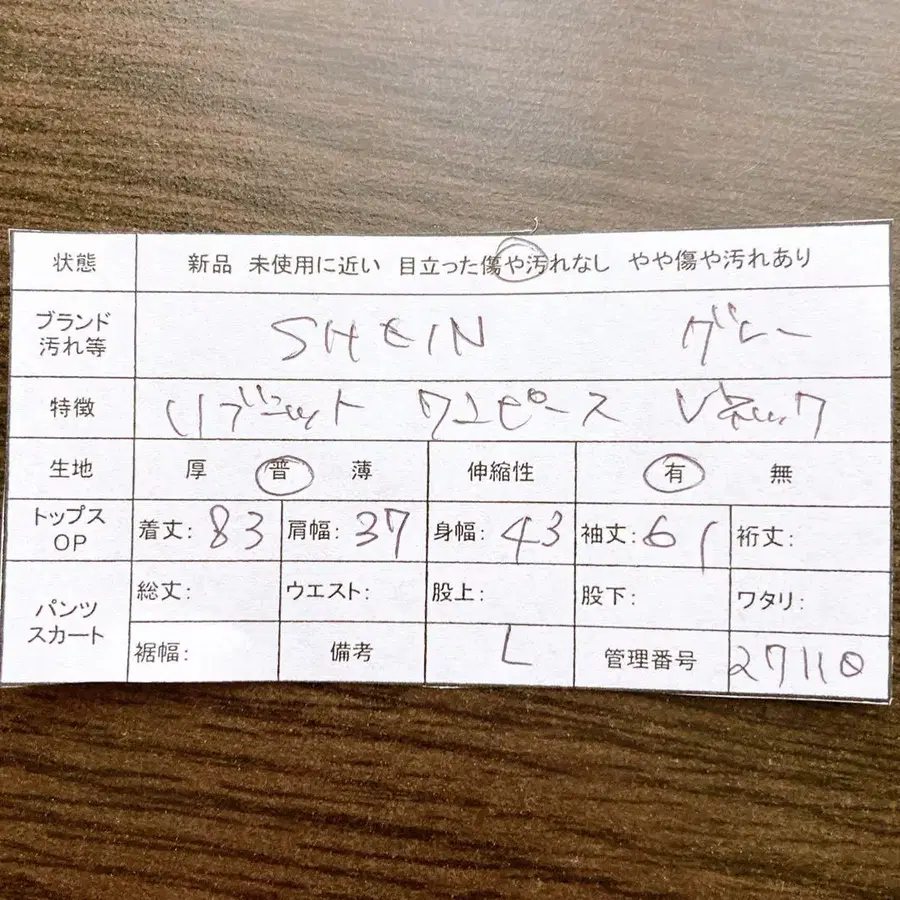 状態 新品 未使用に近い 目立った傷や汚れなし やや傷や汚れあり
ブランド
汚れ等 SHEIN グレー
特徴 リブニット ワンピース Vネック
生地 厚 普 薄 伸縮性 有 無
トップス
OP 着丈: 83 肩幅: 37 身幅: 43 袖丈: 61 裄丈:
パンツ
スカート 総丈: ウエスト: 股上: 股下: ワタリ:
裾幅: 備考 L 管理番号 27110